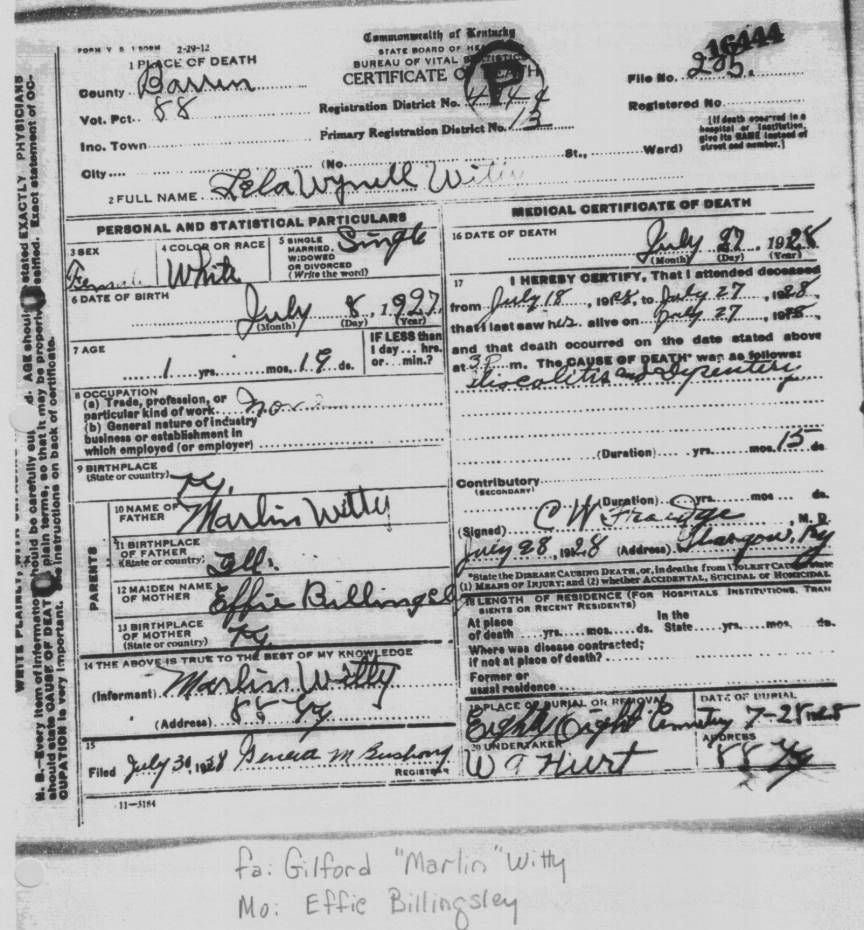 Commonwealth of Kentucky
STATE BOARD OF HEALTH
BUREAU OF VITAL STATISTICS
CERTIFICATE OF DEATH
FORM V. S. 1 2-29-12
16444
File No. 205
1 PLACE OF DEATH
County Barren
Vot. Pct. 88
Inc. Town
City
Registration District No. 4144
Primary Registration District No. 13
Registered No.
[If death occurred in a
hospital or institution,
give its NAME instead of
street and number.]
(No. St., Ward)
2 FULL NAME Lela Wynell Witty
PERSONAL AND STATISTICAL PARTICULARS
3 SEX
Female
4 COLOR OR RACE
White
5 SINGLE
MARRIED,
WIDOWED
OR DIVORCED
(Write the word)
Single
6 DATE OF BIRTH
July 8, 1927
(Month) (Day) (Year)
7 AGE
1 yrs. mos. 19 ds.
IF LESS than
1 day... hrs.
or... min.?
8 OCCUPATION
(a) Trade, profession, or
particular kind of work
(b) General nature of industry
business or establishment in
which employed (or employer)
9 BIRTHPLACE
(State or country)
Ky.
PARENTS
10 NAME OF
FATHER
Marlin Witty
11 BIRTHPLACE
OF FATHER
(State or country)
Ill.
12 MAIDEN NAME
OF MOTHER
Effie Billingsly
13 BIRTHPLACE
OF MOTHER
(State or country)
Ky.
14 THE ABOVE IS TRUE TO THE BEST OF MY KNOWLEDGE
(Informant) Marlin Witty
(Address) 88 Ky
15
Filed July 30, 1928 M Bushong
REGISTRAR
11—3184
MEDICAL CERTIFICATE OF DEATH
16 DATE OF DEATH
July 27 1928
(Month) (Day) (Year)
17 I HEREBY CERTIFY, That I attended deceased
from July 18, 1928, to July 27, 1928,
that I last saw her alive on July 27, 1928,
and that death occurred on the date stated above
at 3 P m. The CAUSE OF DEATH* was as follows:
Iliocolitis and Dysentery
(Duration) yrs. mos. 15 ds.
Contributory
(SECONDARY)
(Duration) yrs. mos. ds.
(Signed) C W Froedge, M. D.
July 28, 1928 (Address) Glasgow, Ky
*State the DISEASE CAUSING DEATH, or, in deaths from VIOLENT CAUSES, state
(1) MEANS OF INJURY; and (2) whether ACCIDENTAL, SUICIDAL OR HOMICIDAL
18 LENGTH OF RESIDENCE (FOR HOSPITALS INSTITUTIONS, TRAN
SIENTS OR RECENT RESIDENTS)
At place In the
of death yrs. mos. ds. State yrs. mos. ds.
Where was disease contracted;
if not at place of death?
Former or
usual residence
19 PLACE OF BURIAL OR REMOVAL
Eighty Eight Cemetery
DATE OF BURIAL
7-28 1928
20 UNDERTAKER
W A Hurt
ADDRESS
88 Ky
fa: Gilford "Marlin" Witty
Mo: Effie Billingsley